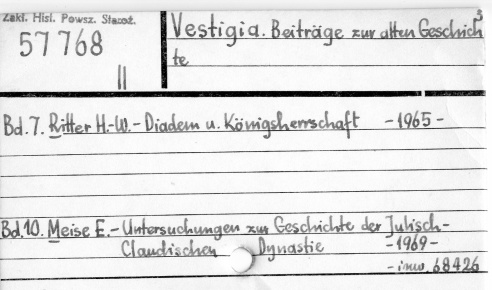 Zakł. Hist. Powsz. Staroż.
57768
II
Vestigia. Beiträge zur alten Geschich
3
te
Bd.7. Ritter H.-W.- Diadem u. Königsherrschaft -1965-
Bd.10. Meise E.- Untersuchungen zur Geschichte der Julisch-
Claudischen Dynastie -1969-
- inw. 68426